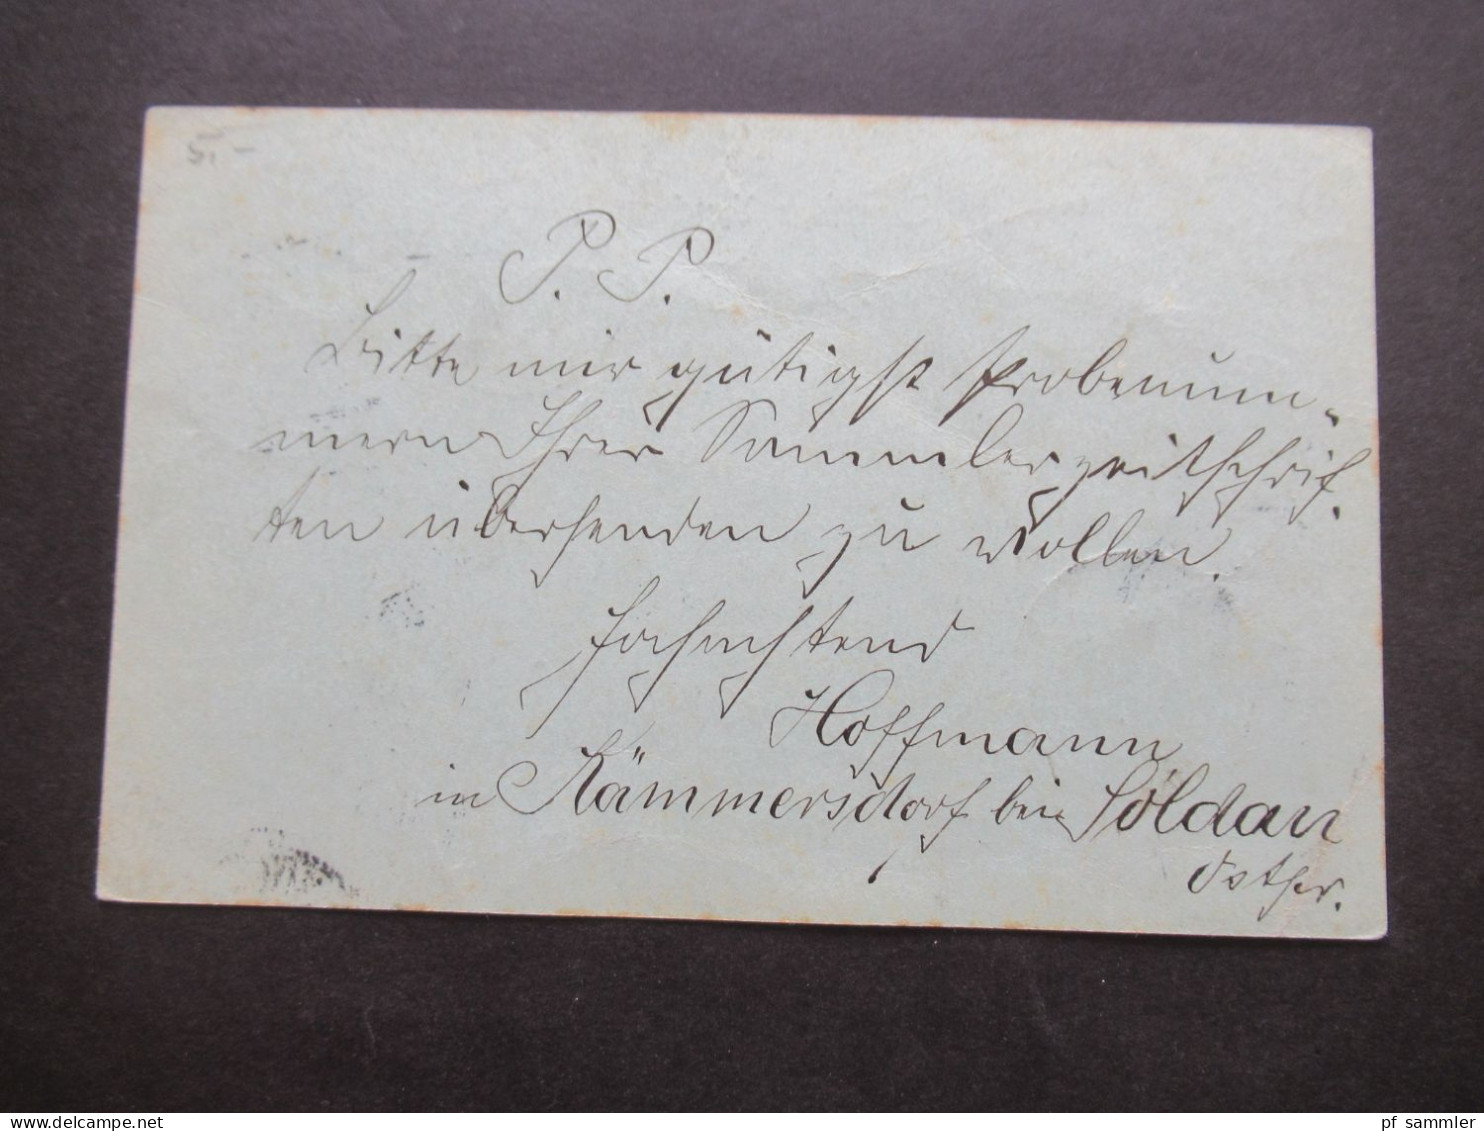 5,-
P. P.
Bitte mir gütigst Probenum-
mern Ihrer Sammlerzeitschrif-
ten übersenden zu wollen.
Hochachtend
Hoffmann
in Kämmersdorf bei Soldau
Ostpr.
www.delcampe.net
pf_sammler